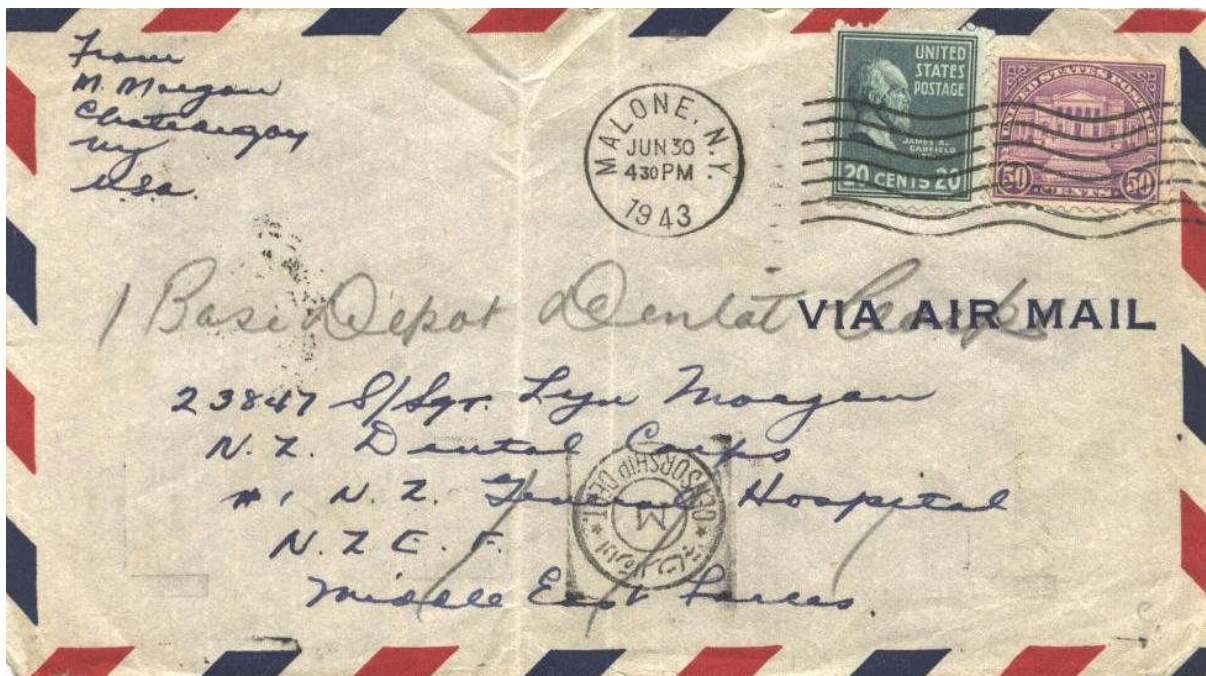 From
M. Morgan
Chateaugay
NY
USA.
MALONE, N.Y.
JUN 30
430 PM
1943
UNITED
STATES
POSTAGE
JAMES A.
GARFIELD
20 CENTS 20
UNITED STATES POSTAGE
50 CENTS 50
1 Base Depot Dental Corps
VIA AIR MAIL
23847 S/Sgt. Lyn Morgan
N.Z. Dental Corps
#1 N.Z. General Hospital
N.Z E. F.
Middle East Forces.
* CENSORSHIP DEPT. *